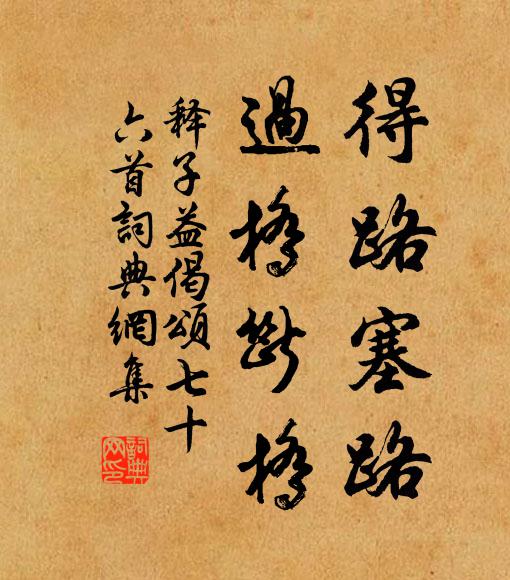 得路塞路
過橋斷橋
释子益偈頌七十
六首詞典網集
詞典网印